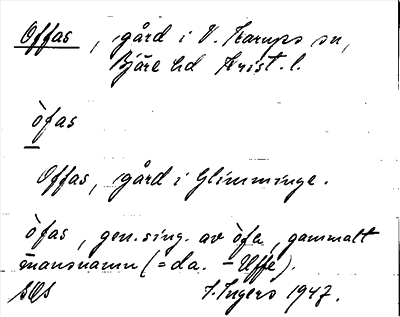 Offas, gård i V. Karups sn,
Bjäre hd Krist. l.
òfas
Offas, gård i Glimminge.
òfas, gen. sing. av òfa, gammalt
mansnamn (= da. – Uffe).
SOS I. Ingers 1947.